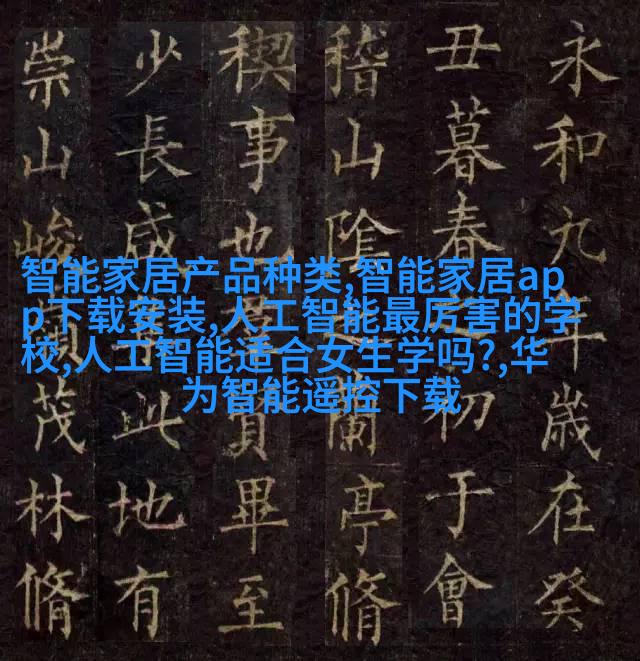 永和九年歲在癸
丑暮春初于會
稽山陰蘭亭脩
稧事也賢畢至
少長咸此地有
崇山峻領茂林脩
智能家居产品种类,智能家居ap
p下载安装,人工智能最厉害的学
校,人工智能适合女生学吗?,华
为智能遥控下载